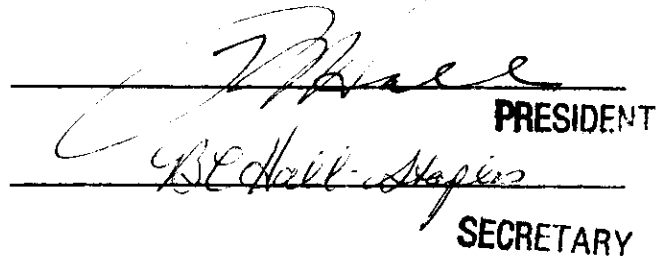 Hall
PRESIDENT
BC Hall-Staples
SECRETARY